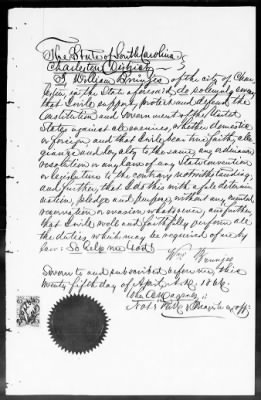 The State of South Carolina
Charleston District
I William Brunges of the city of Char
leston, in the State aforesaid, do solemnly swear
that I will support, protect and defend the
Constitution and Government of the United
States against all enemies, whether domestic
or foreign and that I will bear true faith, alle
giance and loyalty to the same, any ordinance
resolution or any law of any State Convention
or Legislature to the contrary notwithstanding,
and further, that I do this with a full determi
nation, pledge and purpose, without any mental
reservation or evasion whatsoever, and further
that I will well and faithfully perform all
the duties which may be required of me by
law: So help me God:
Wm Brunges
Sworn to and subscribed before me, this
twenty fifth day of April A.D. 1866
Not: Pub: